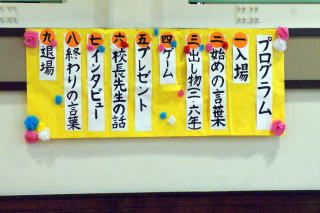 プログラム
一 入場
二 始めの言葉
三 出し物(三・六年)
四 ゲーム
五 プレゼント
六 校長先生の話
七 インタビュー
八 終わりの言葉
九 退場